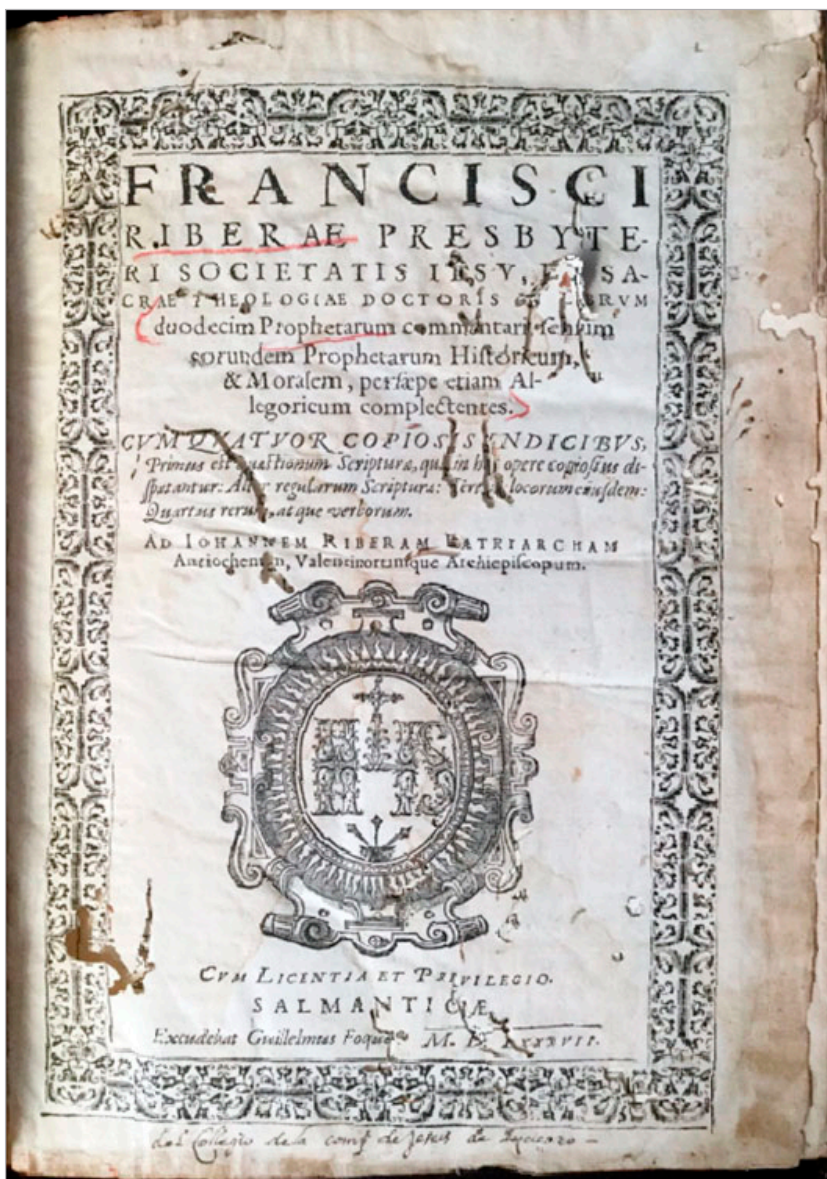 FRANCISCI
RIBERAE PRESBYTE-
RI SOCIETATIS IESV, SA-
CRAE THEOLOGIAE DOCTORIS
duodecim Prophetarum commentarii sensum
eorundem Prophetarum Historicum,
& Moralem, persæpe etiam Al-
legoricum complectentes.
CVM QVATVOR COPIOSIS INDICIBVS,
Primus est quæstionum Scripturæ, quæ in hoc opere copiosius dis-
putantur: Alter regularum Scripturæ: Tertius locorum eiusdem:
Quartus rerum, atque verborum.
AD IOHANNEM RIBERAM PATRIARCHAM
Antiochenum, Valentinorumque Archiepiscopum.
CVM LICENTIA ET PRIVILEGIO.
SALMANTICÆ,
Excudebat Guillelmus Foquel M. D. LXXXVII.
del Collegio de la comp de Jesus de